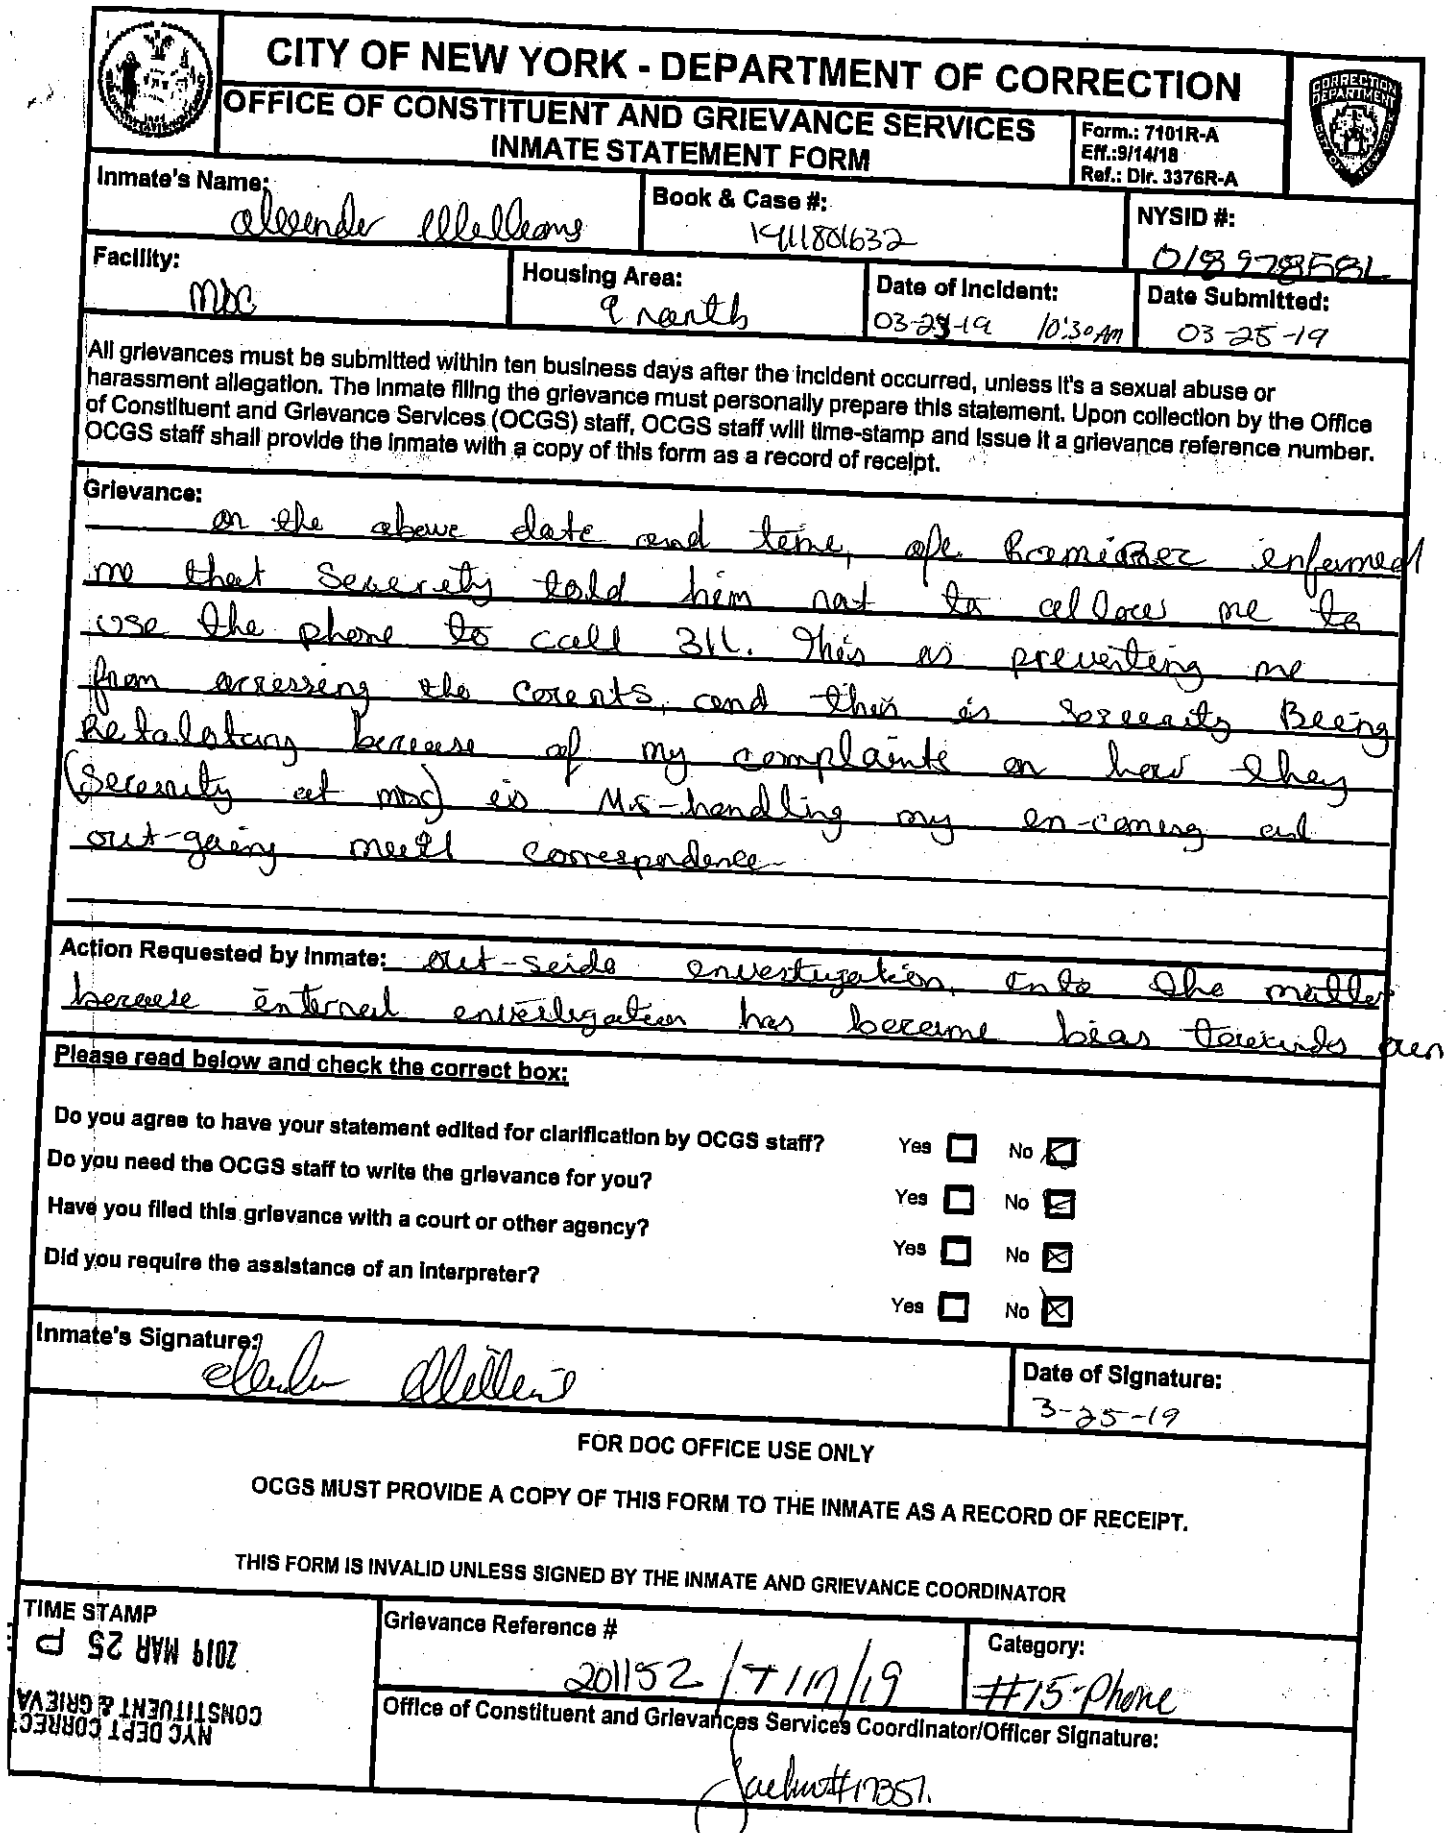 CITY OF NEW YORK - DEPARTMENT OF CORRECTION
OFFICE OF CONSTITUENT AND GRIEVANCE SERVICES
INMATE STATEMENT FORM
Form.: 7101R-A
Eff.:9/14/18
Ref.: Dir. 3376R-A
CORRECTION
DEPARTMENT
Inmate's Name:
Book & Case #:
1411801632
NYSID #:
Facility:
MDC
Housing Area:
9 north
Date of Incident:
10:30 AM
Date Submitted:
03-25-19
All grievances must be submitted within ten business days after the incident occurred, unless it's a sexual abuse or
harassment allegation. The inmate filing the grievance must personally prepare this statement. Upon collection by the Office
of Constituent and Grievance Services (OCGS) staff, OCGS staff will time-stamp and issue it a grievance reference number.
OCGS staff shall provide the inmate with a copy of this form as a record of receipt.
Grievance:
on the above date and time, informed
me that Security told him not to allow me to
use the phone to call 311. This is preventing me
from accessing the courts, and this is Security Being
Retalotary because of my complaints on how they
(Security at MDC) is Mis-handling my in-coming and
out-going mail correspondence
Action Requested by Inmate: out-side investigation into the matter
because internal investigation has became bias towards
Please read below and check the correct box:
Do you agree to have your statement edited for clarification by OCGS staff? Yes No
Do you need the OCGS staff to write the grievance for you? Yes No
Have you filed this grievance with a court or other agency? Yes No
Did you require the assistance of an interpreter? Yes No
Inmate's Signature:
Date of Signature:
3-25-19
FOR DOC OFFICE USE ONLY
OCGS MUST PROVIDE A COPY OF THIS FORM TO THE INMATE AS A RECORD OF RECEIPT.
THIS FORM IS INVALID UNLESS SIGNED BY THE INMATE AND GRIEVANCE COORDINATOR
TIME STAMP
2019 MAR 25 P
NYC DEPT CORRECT
CONSTITUENT & GRIEVA
Grievance Reference #
201152
Category:
#15-Phone
Office of Constituent and Grievances Services Coordinator/Officer Signature:
#17357.